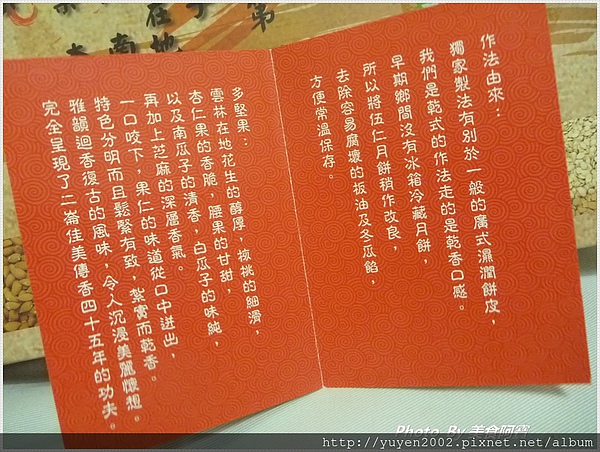 作法由來：
獨家製法有別於一般的廣式濕潤餅皮，
我們是乾式的作法走的是乾香口感。
早期鄉間沒有冰箱冷藏月餅，
所以將伍仁月餅稍作改良，
去除容易腐壞的板油及冬瓜餡，
方便常溫保存。
多堅果：
雲林在地花生的醇厚，核桃的細滑，
杏仁果的香脆，腰果的甘甜，
以及南瓜子的清香，白瓜子的味純，
再加上芝麻的深層香氣。
一口咬下，果仁的味道從口中迸出，
特色分明而且鬆緊有致，紮實而乾香。
雅韻迴香復古的風味，令人沉浸美麗懷想。
完全呈現了二崙佳美傳香四十五年的功夫。
第
在地
南
Photo By 美食阿宥
http://yuyen2002.pixnet.net/album